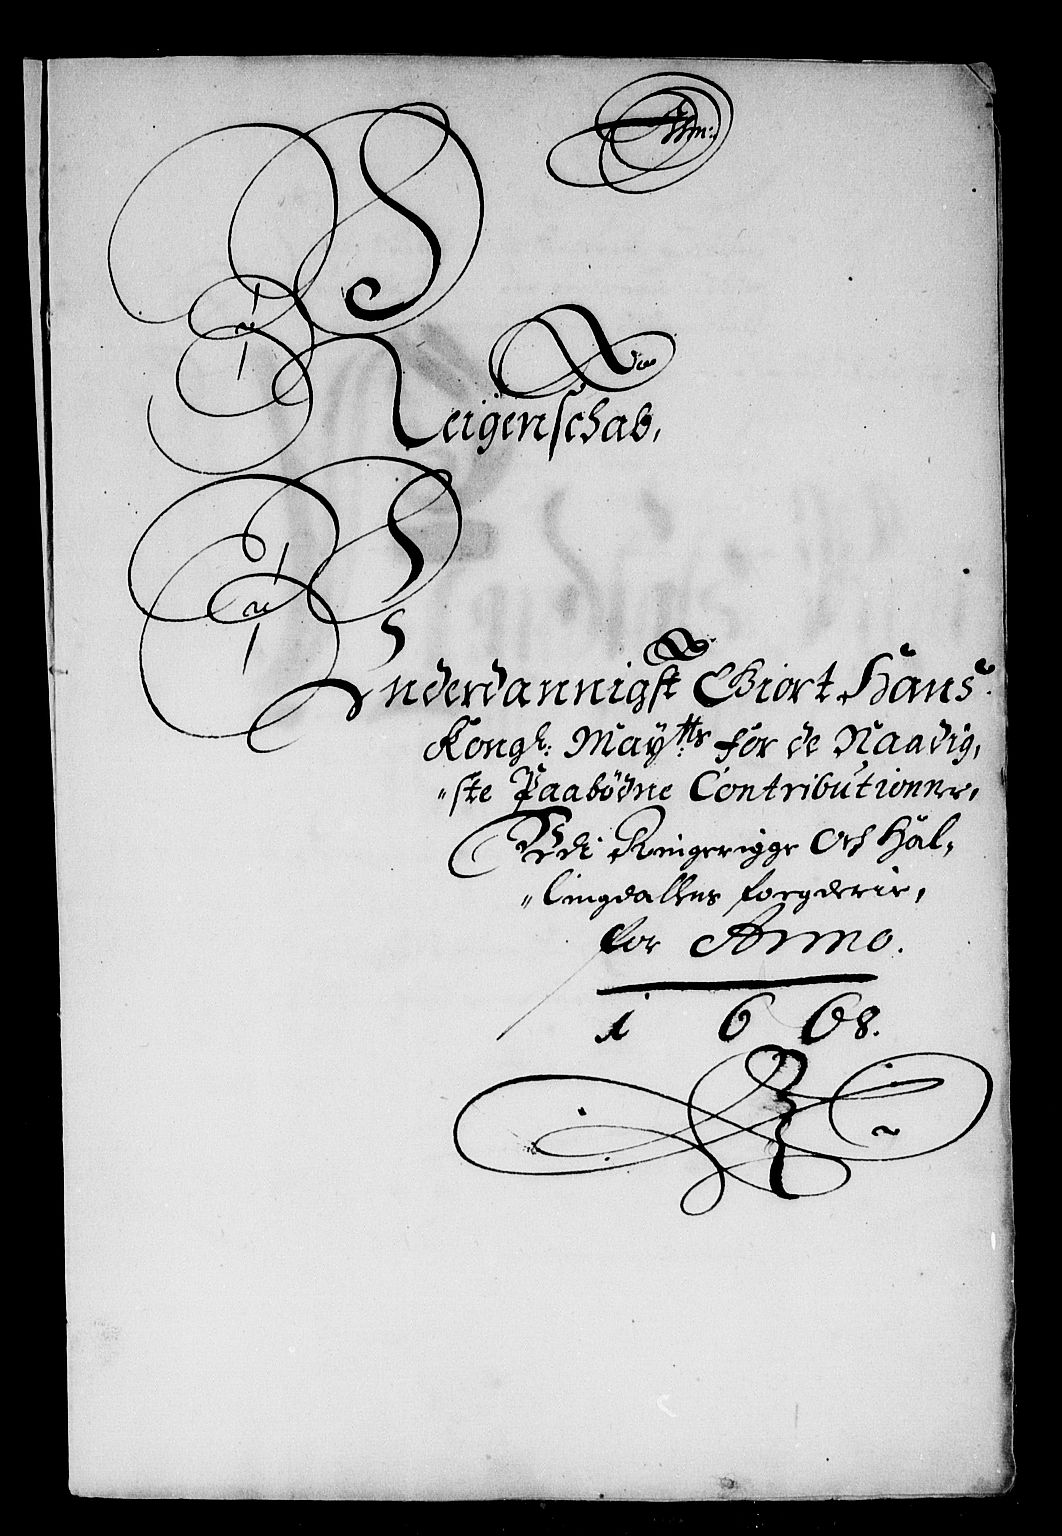 Reigenschab,
Vnderdannigst Giort Hans
Kongl: Maÿtts for de Naadig,
"ste Paabödne Contributioner,
Udi Ringerigge Och Hal,
"lingdallens fougderie,
for Anno.
1668.